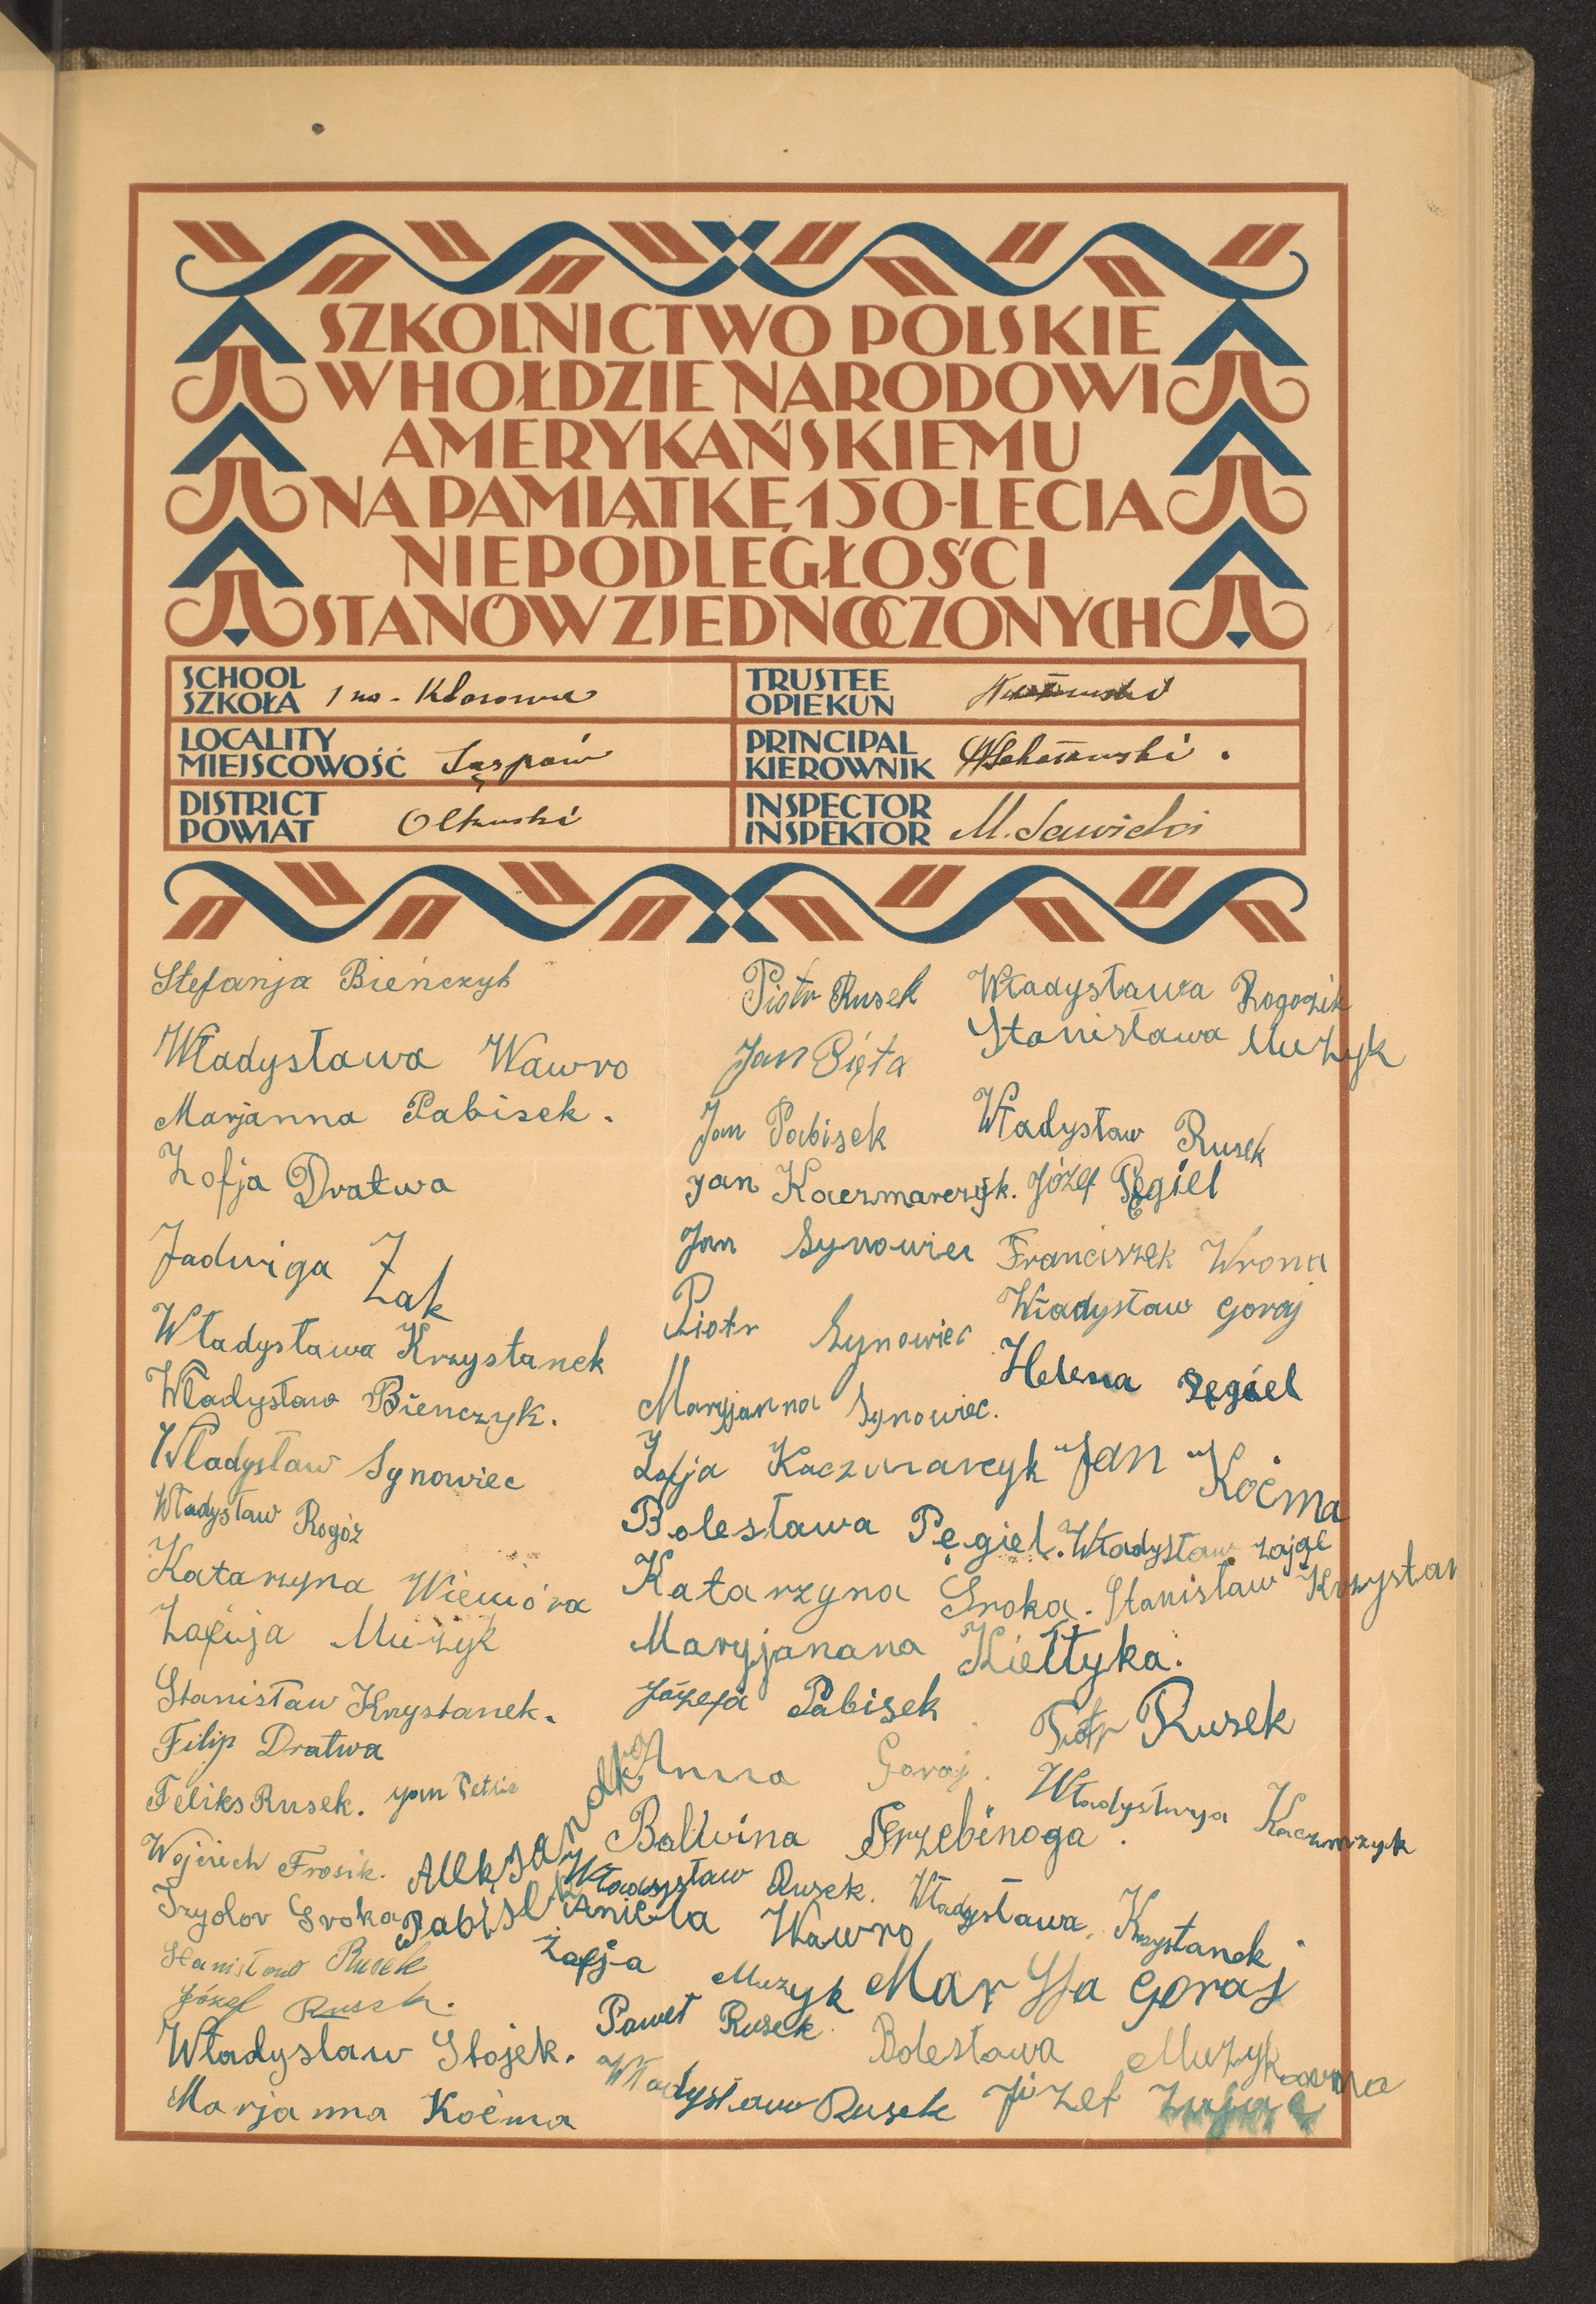 SZKOLNICTWO POLSKIE
W HOŁDZIE NARODOWI
AMERYKAŃSKIEMU
NA PAMIĄTKĘ 150-LECIA
NIEPODLEGŁOŚCI
STANÓW ZJEDNOCZONYCH
SCHOOL
SZKOŁA 1 no - Klasowa
TRUSTEE
OPIEKUN
LOCALITY
MIEJSCOWOŚĆ Sąspów
PRINCIPAL
KIEROWNIK
DISTRICT
POWIAT Olkuski
INSPECTOR
INSPEKTOR M. Sawicki
Stefanja Bieńczyk
Władysława Wawro
Marjanna Pabisek.
Zofja Dratwa
Jadwiga Żak
Władysława Krzystanek
Władysław Bienczyk.
Władysław Synowiec
Władysław Rogóż
Katarzyna Wiewióra
Zofija Muzyk
Stanisław Krzystanek.
Filip Dratwa
Feliks Rusek. Jan
Wojciech Frosik.
Izydor Sroka
Stanisław Rusek
Józef Rusek.
Władysław Stojek.
Marjanna Koćma
Piotr Rusek
Jan Pięta
Jan Pabisek
Jan Kaczmarczyk.
Jan Synowiec
Piotr Synowiec
Maryjanna Synowiec.
Zofja Kaczmarcyk
Bolesława Pęgiel.
Katarzyna Sroka.
Maryjanana Kiełtyka.
Józefa Pabisek
Anna Goraj.
Balwina Trzebinoga.
Aleksandra Pabisek
Władysław Rusek.
Aniela Wawro
Zofja Muzyk
Paweł Rusek
Władysław Rusek
Władysława Rogozik
Stanisława Muzyk
Władysław Rusek
Józef Pęgiel
Franciszek Wrona
Władysław Goraj
Helena Pęgiel
Jan Koćma
Władysław Zając
Stanisław Krzystan
Piotr Rusek
Kaczmrzyk
Władysława Krzystanek
Maryja Goraj
Bolesława Muzykowna
Józef Zając